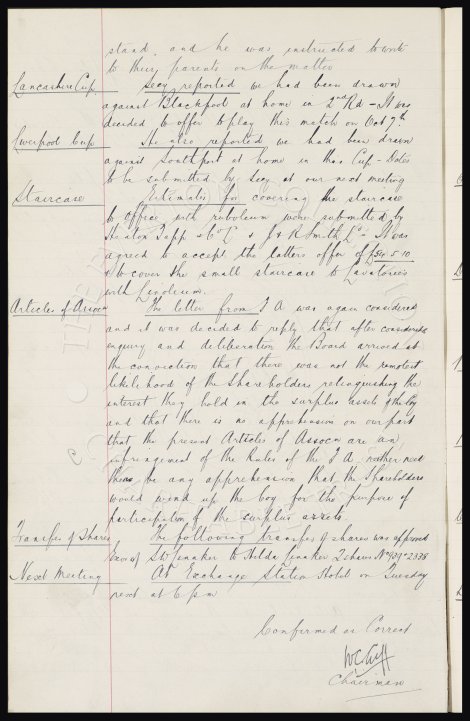 stand, and he was instructed to write
to their parents on the matter
Lancashire Cup Secy reported we had been drawn
against Blackpool at home in 2nd Rd - It was
decided to offer to play this match on Oct 7th
Liverpool Cup He also reported we had been drawn
against Southport at home in this Cup - Dates
to be submitted by Secy at our next meeting
Staircase Estimates for covering the staircase
to office with ruboleum were submitted by
Heaton Tapp & Co Ld & J & R Smith Ld. It was
agreed to accept the latters offer of £54-5-10
& to cover the small staircase to Lavatories
with Linoleum.
Articles of Assocn The letter from F A was again considered
and it was decided to reply that after considerable
enquiry and deliberation the Board arrived at
the conviction that there was not the remotest
likelihood of the Shareholders relinquishing the
interest they hold in the surplus assets of the Coy
and that there is no apprehension on our part
that the present Articles of Assocn are an
infringement of the Rules of the F A, neither need
there be any apprehension that the Shareholders
would wind up the Coy for the purpose of
participation of the surplus assets.
Transfer of Shares The following transfer of shares was approved
to Hilda
Next Meeting At Exchange Station Hotel on Tuesday
next at 6 pm
Confirmed as Correct
W C Cuff
Chairman